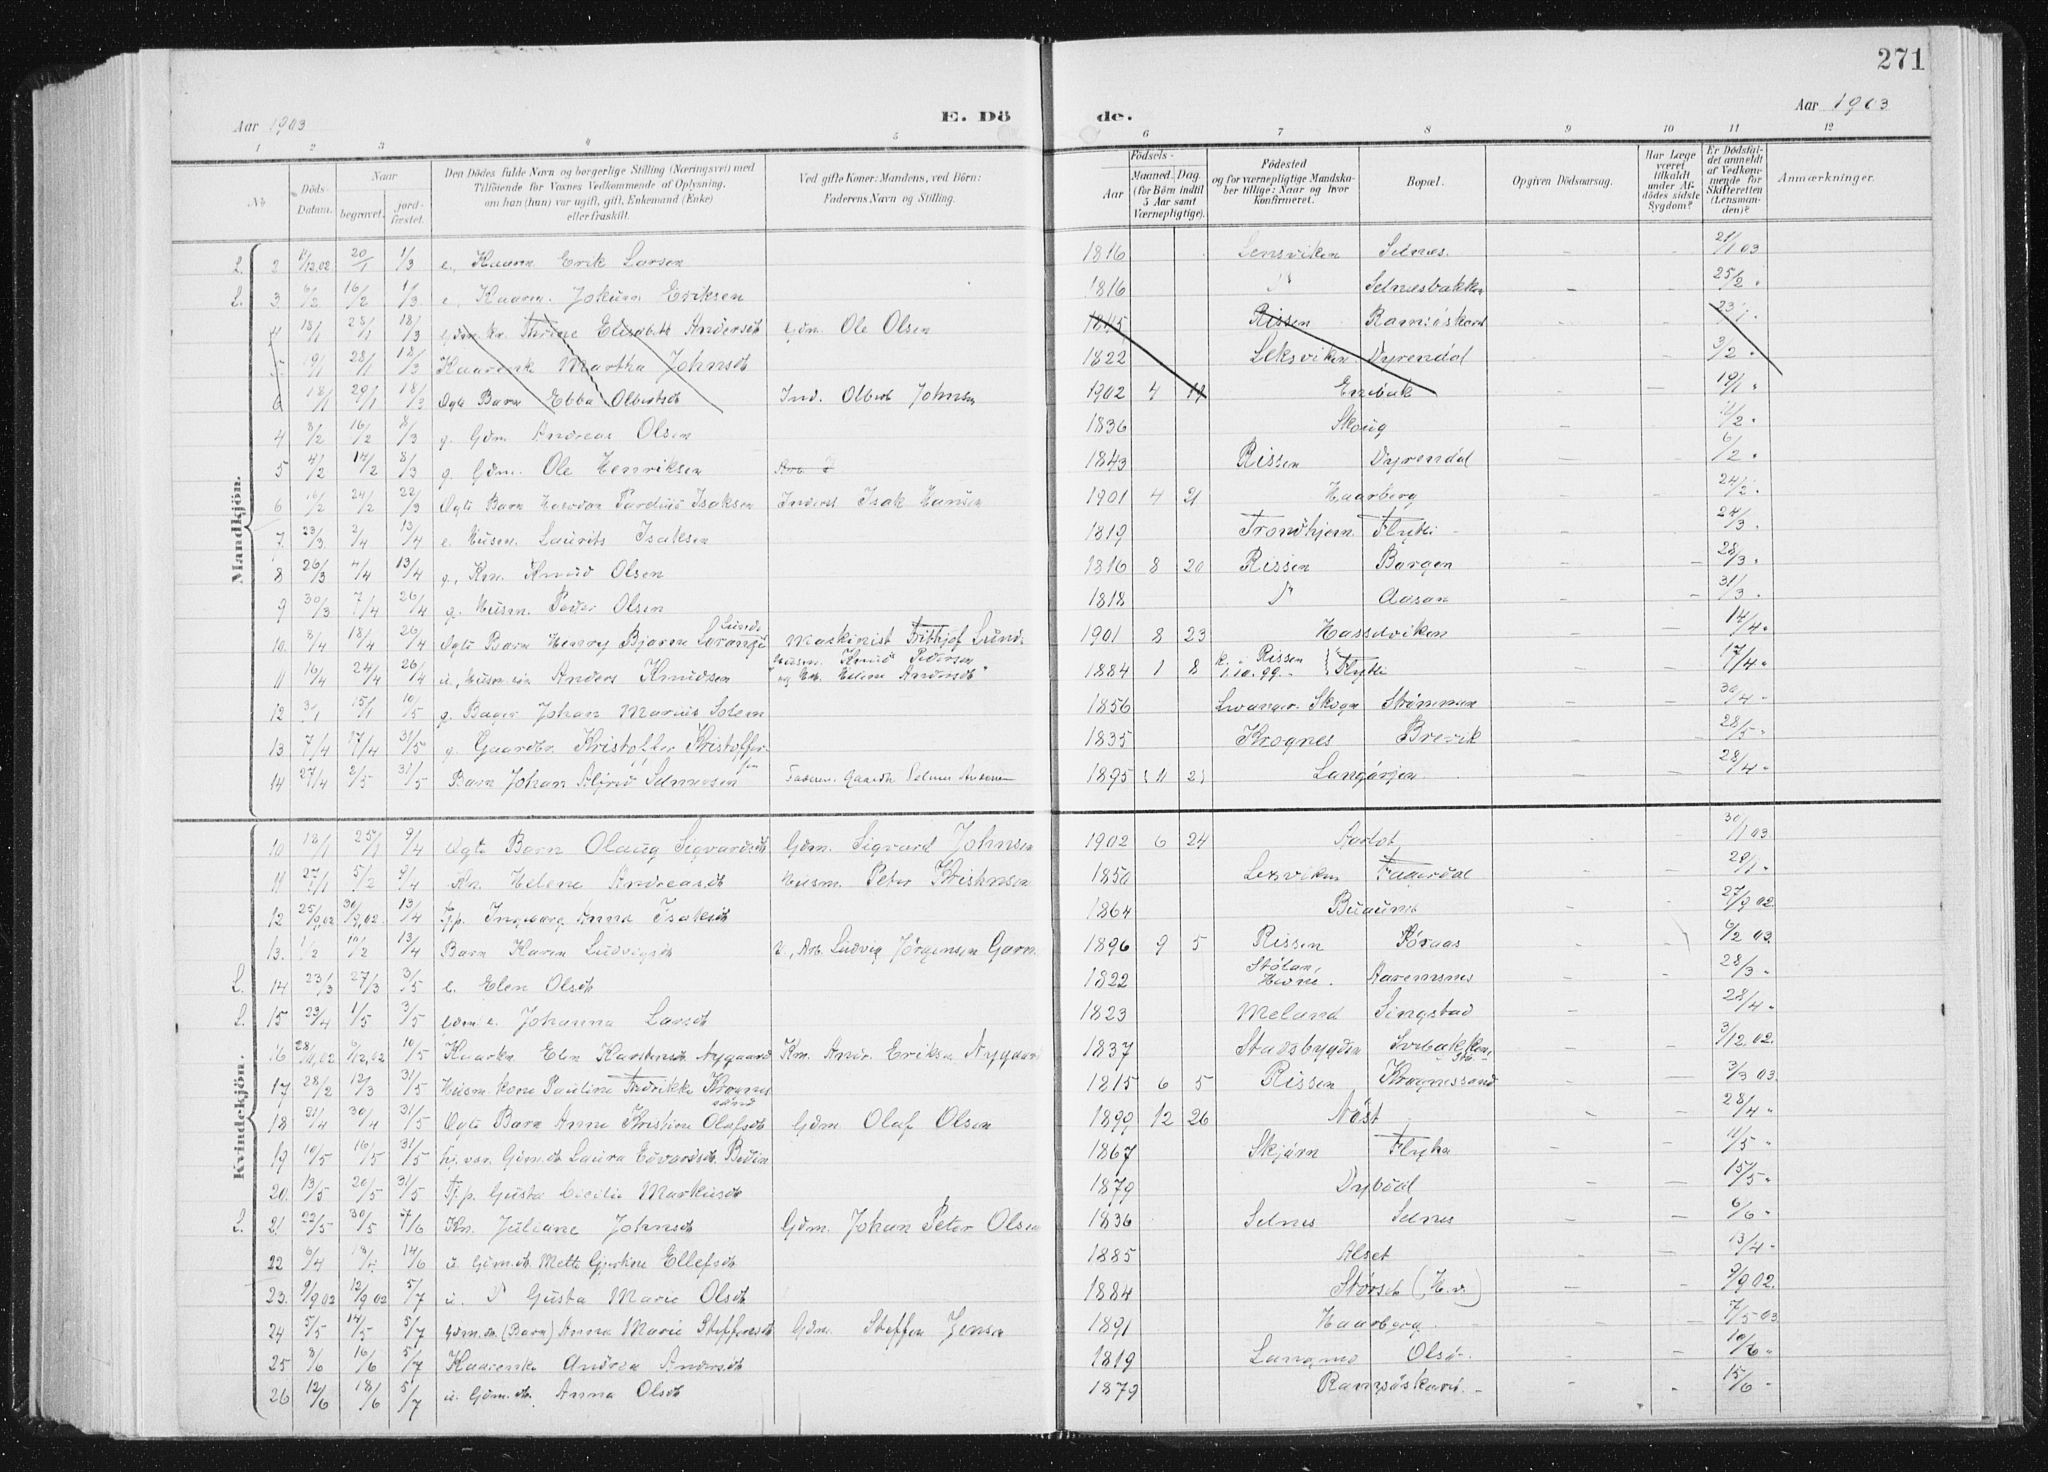 271
Aar 1903
E. Döde.
Aar 1903
1 2 3 4 5 6 7 8 9 10 11 12
No
Döds-Datum.
Naar
begravet.
jord-fæstet.
Den Dödes fulde Navn og borgerlige Stilling (Næringsvei) med
Tilföiende for Voxnes Vedkommende af Oplysning,
om han (hun) var ugift, gift, Enkemand (Enke)
eller fraskilt.
Ved gifte Koner: Mandens, ved Börn:
Faderens Navn og Stilling.
Födsels-
Aar
Maaned. Dag.
(for Börn indtil
5 Aar samt
Værnepligtige).
Födested
og for værnepligtige Mandska-
ber tillige: Naar og hvor
Konfirmeret.
Bopæl.
Opgiven Dödsaarsag.
Har Læge
været
tilkaldt
under Af-
dödes sidste
Sygdom?
Er Dödsfal-
det anmeldt
af Vedkom-
mende for
Skifteretten
(Lensman-
den)?
Anmærkninger.
Mandkjön.
L. 2 20/1 1/3 e. Kaarm Erik Larsen 1816 Lensviken Selnæs. 21/1 03
L. 3. 6/2 16/2 1/3 e. Kaarm. Johan Eriksen 1816 Do Selnæsbakken 25/2 "
4 18/1 28/1 18/3 Gdm. kn. Thrine Elisabeth Andersdt Gdm. Ole Olsen 1845 Rissen Ramsöskard 23/1 "
5 19/1 28/1 18/3 Kaarenk Martha Johnsdt 1822 Leksviken Dyrendal 3/2 "
6 18/1 29/1 18/3 Ægte Barn Ebba Olbertsdt Ind. Olbert Johnsen 1902 4 19 Enebak 19/1 "
4 8/2 16/2 8/3 g. Gdm. Andreas Olsen 1836 Skoug
5 4/2 14/2 8/3 g. Gdm. Ole Henriksen 1843 Rissen Dyrendal 6/2 "
6 16/2 24/2 22/3 Ægte Barn Isaksen Inderst Isak Hansen 1901 4 21 Haarberg 24/2 "
7. 23/3 2/4 13/4 e. Husm. Laurits Isaksen 1819 Trondhjem Flytti 24/3 "
8 26/3 4/4 13/4 g. Km. Knud Olsen 1816 8 20 Rissen Borgen 28/3 "
9 30/3 7/4 26/4 g. Husm. Peder Olsen 1818 Do Aasan 31/3 "
10. 8/4 18/4 26/4 Ægte Barn Henry Bjarne Lund Maskinist Frithjof Lund 1901 8 23 Hasselviken 14/4 "
11 16/4 24/4 26/4 u. Husm. sön Anders Knudsen Husm. Knud Pedersen og Helene Andersdt 1884 1 8 k. Rissen 1.10.99. Flytti 17/4 "
12 3/1 15/1 10/5 g. Bager Johan Marius Solem 1856 Levanger Skogn Strömmen 30/4 "
13 7/4 17/4 31/5 g. Gaardbr. Kristoffer Kristoffersen 1835 Krognes Brevik 28/5 "
14 27/4 2/5 31/5 Barn Johan Alfred Selmersen Faderen: Gaardbr. Selmer Andersen 1895 11 21 Langörjen 28/4 "
Kvindekjön.
10 18/1 25/1 9/4 Ægte Barn Olaug Sigvardsdt Gdm. Sigvard Johnsen 1902 6 24 Aarlot 30/1 03.
11 27/1 5/2 9/4 Kn. Helene Andreasdt Husm. Peter Kristensen 1850 Lensviken Faaerdal 29/1 "
12 25/9,02 30/9,02 13/4 Fp. Ingeborg Anna Isaksdt 1864 Buaunet 27/9 02
13. 1/2 10/2 13/4 Barn Karen Ludvigsdt Arb. Ludvig Jörgensen Garn 1896 9 5 Rissen Röraas 6/2 03.
L. 14 23/3 27/3 3/5 e. Elen Olsdt 1822 Stölan, Hevne. Aaremsnes 28/3 "
L. 15 23/4 1/5 3/5 Gdm e. Johanna Larsdt 1823 Meland Singstad 28/4 "
16 28/11,02 6/12,02 10/5 Kaarkn Elen Karstensdt Nygaard Km. Andr. Eriksen Nygaard 1837 Stadsbygden 3/12 02.
17 28/2 12/3 31/5 Husm.kone Pauline Fredrikke Krognessand 1815 6 5 Rissen Krognessand 3/3 03.
18 21/4 30/4 31/5 Ægte Barn Anne Kristine Olafsdt Gdm. Olaf Olsen 1899 12 26 Næst 28/4 "
19 10/5 16/5 31/5 Gdm.dt Laura Edvardsdt Bodin 1867 Skjörn Flytta 11/5 "
20. 13/5 20/5 31/5 Fp. Gusta Cecilie Markusdt 1879 Dybdal 15/5 "
L. 21. 22/5 30/5 7/6 Kn. Juliane Johnsdt Gdm. Johan Peter Olsen 1836 Selnes Selnes 6/6 "
22 6/4 14/6 u. Gdm.dt Mette Gjertine Ellefsdt 1885 Alset 13/4 "
23. 9/9 02 12/9 02 5/7 u. Do Gusta Marie Olsdt 1884 Störset (H.v.) 9/9 02.
24 5/5 14/5 5/7 Gdm.dt. (Barn) Anna Marie Steffensdt Gdm. Steffen Jensen 1891 Haarberg 7/5 03
25 8/6 16/6 5/7 Kaarenke Andrea Andersdt 1819 Langmo Olsö 10/6 "
26 12/6 18/6 5/7 u. Gdm. dt. Anna Olsdt 1879 Ramsöskard 15/6 "